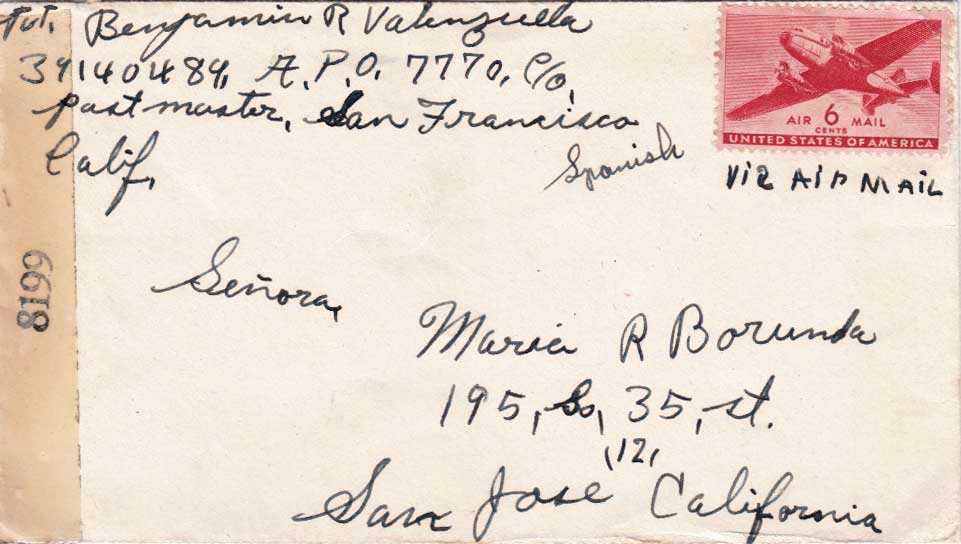 Pvt. Benjamin R Valenzuella
39140489, A.P.O. 7770, C/o,
Postmaster, San Francisco
Calif,
Spanish
AIR 6 MAIL
CENTS
UNITED STATES OF AMERICA
Via AIR MAIL
8199
Señora,
Maria R Borunda
195, So, 35, st.
San José ,12, California